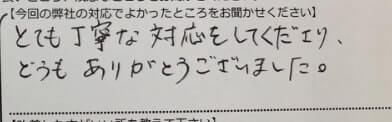 【今回の弊社の対応でよかったところをお聞かせください】
とても丁寧な対応をしてくださり、
どうもありがとうございました。